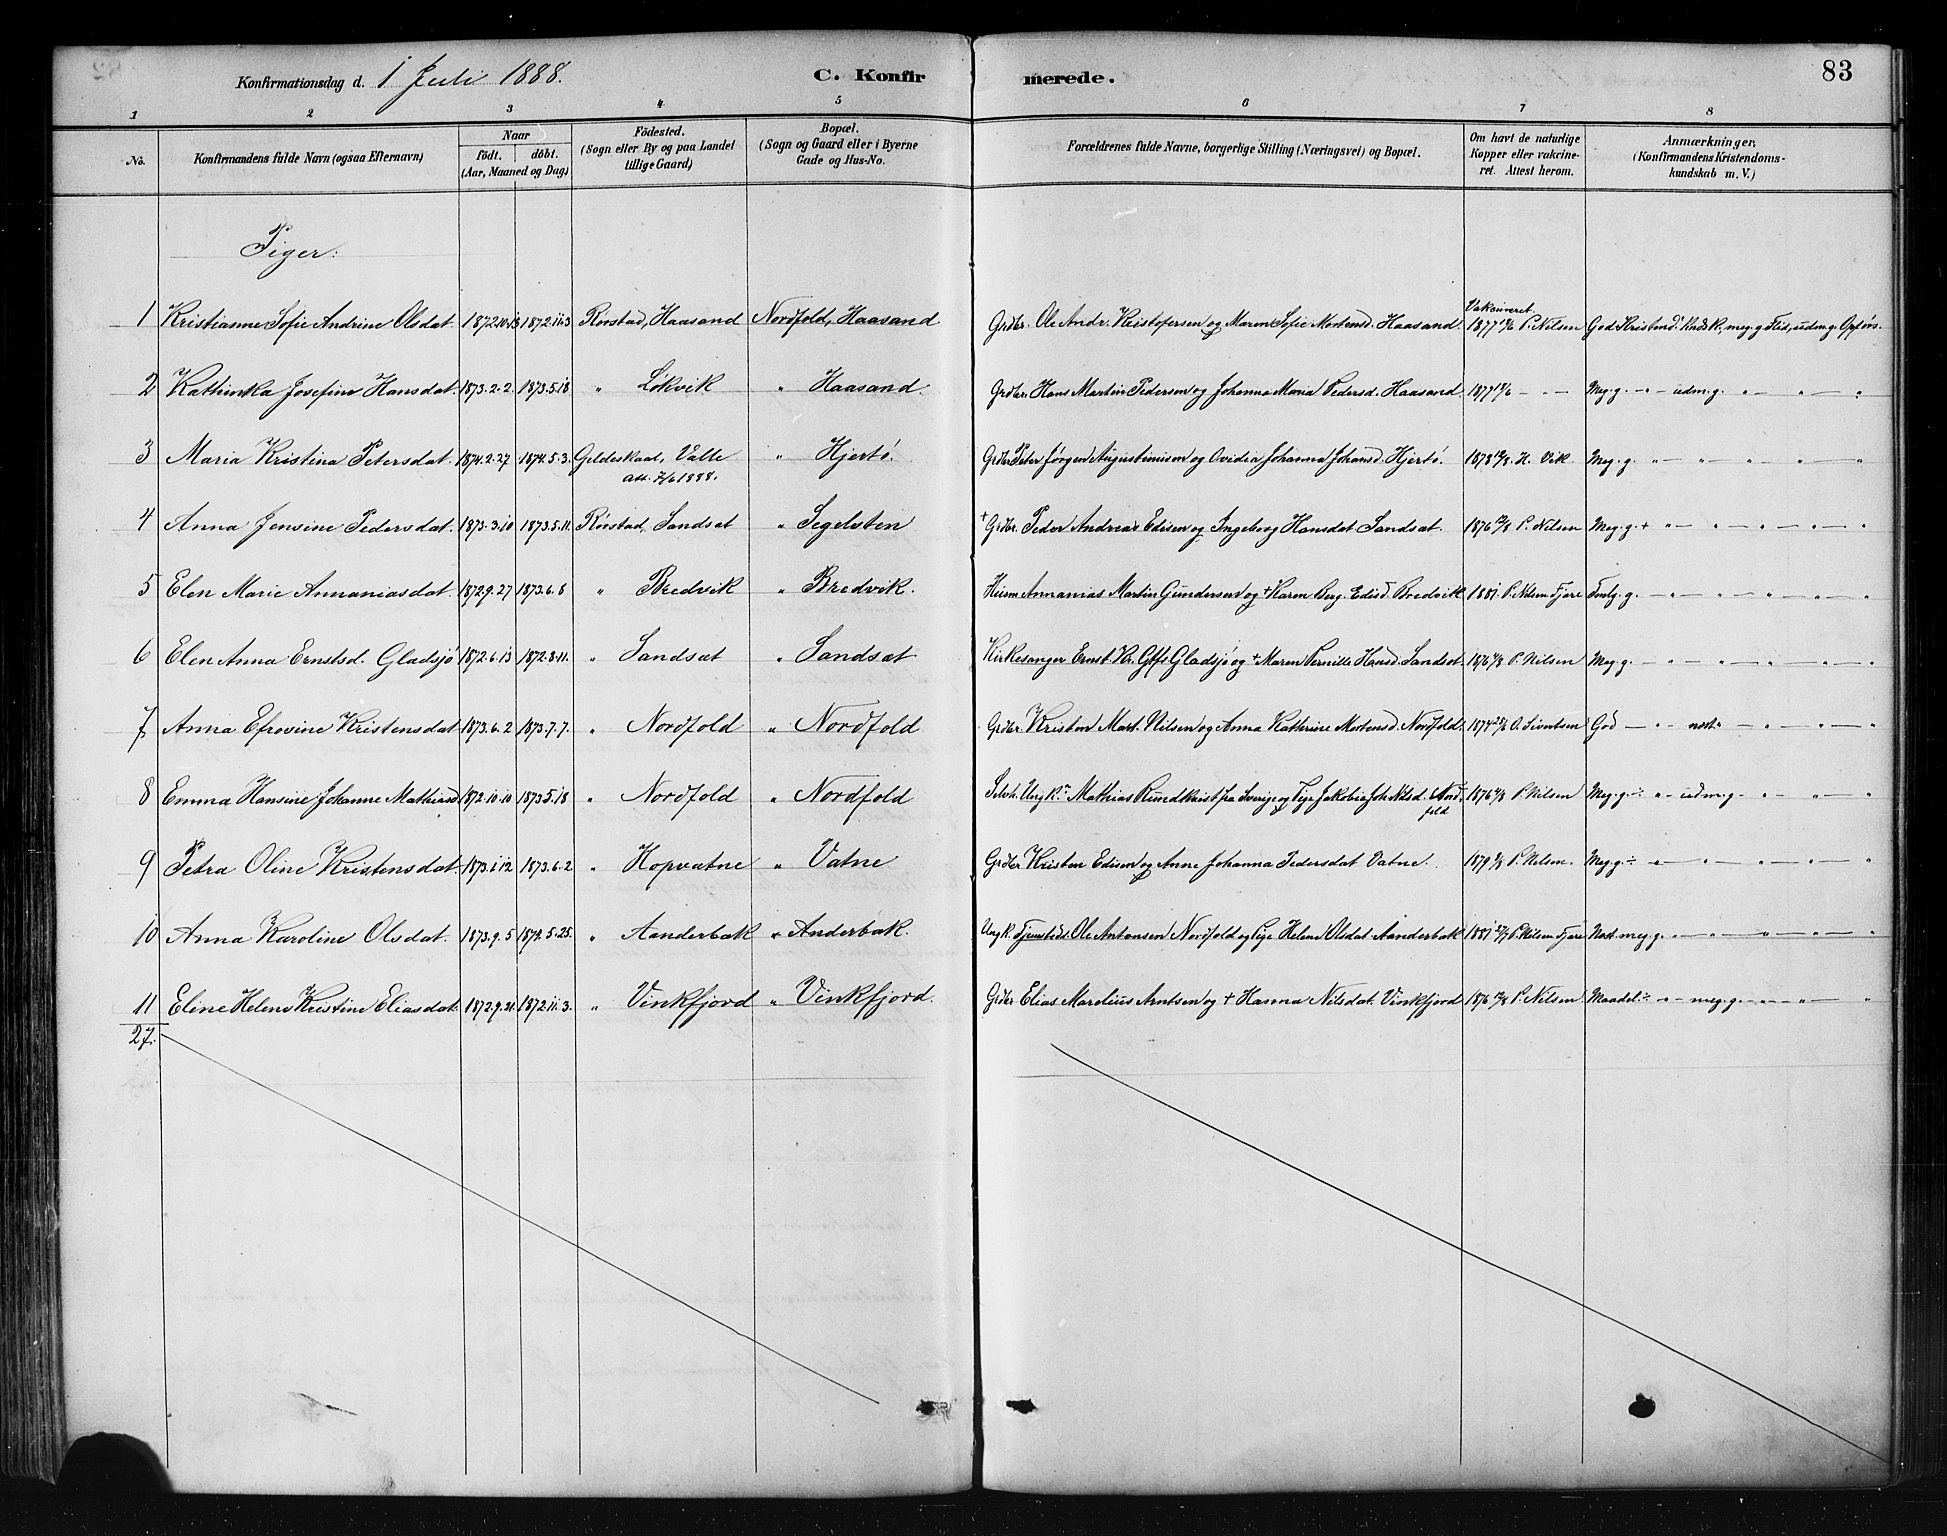 Konfirmationsdag d. 1 Juli 1888. C. Konfirmerede. 83
1 2 3 4 5 6 7 8
No. Konfirmandens fulde Navn (ogsaa Efternavn) Naar födt. döbt. (Aar, Maaned og Dag) Födested. (Sogn eller By og paa Landet tillige Gaard) Bopæl. (Sogn og Gaard eller i Byerne Gade og Hus-No. Forældrenes fulde Navne, borgerlige Stilling (Næringsvei) og Bopæl. Om havt de naturlige Kopper eller vakcineret. Attest herom. Anmærkninger. (Konfirmandens Kristendomskundskab m. V.)
Piger:
1 Kristianne Sofie Andrine Olsdat. 1872.10.13 1872.11.3 Rörstad, Haasand Nordfold, Haasand Grdbr. Ole Andr. Kristofersen og Maren Sofie Mortensd. Haasand. Vakcineret 1877 P. Nilsen God Kristend. Kndsk., meg. g. Flid, udm. g. Opförs.
2 Kathinka Josefine Hansdat. 1873.2.2. 1873.5.18 " Løkvik " Haasand. Grdbr. Hans Martin Pedersen og Johanna Maria Pedersd. Haasand. 1877 - " - Meg. g. - " - udm. g. " - " - "
3 Maria Kristina Petersdat. 1874.2.27 1874.5.3. Gildeskaal, Valle Att. 7/6 1888. " Hjertö. Grdbr. Peter Jörgen Augustinusen og Ovidia Johanna Johansd. Hjertö. 1878 H. Vik. Meg. g. " - " - " - " - "
4 Anna Jensine Pedersdat. 1873.3.10 1873.5.11. Rörstad, Sandsat " Segelsten + Grdbr. Peder Andreas Edisen og Ingeborg Hansdat Sandsat. 1876 P. Nilsen Meg. g. + " - " - " - " - "
5 Elen Marie Annaniasdat. 1872.9.27 1873.6.8 " Bredvik " Bredvik. Annanias Martin Gundersen og + Karen Berg. Edisd. Bredvik 1881. P. Nilsen Fjære g. - " - " - " - " - "
6 Elen Anna Ernstsd. Gladsjö 1872.6.13 1872.8.11. " Sandsat " Sandsat. Kirkesanger Ernst Kr. Gladsjö og + Maren Pernille Hansd. Sandsat. 1876 P. Nilsen Meg. g. - " - " - " - " - "
7 Anna Efrosine Kristensdat 1873.6.2 1873.7.7. " Nordfold " Nordfold. Grdbr. Kristen Mart. Nilsen og Anna Kathrine Mortensd. Nordfold. 1874 O. Sivertsen God - " - " - " - " - "
8 Emma Hansine Johanne Mathiasd. 1872.10.10 1873.5.18 " Nordfold " Nordfold Ungk. Mathias fra Sverige og Pige Jakobia Joh. Nilsd. Nordfold 1876 P. Nilsen Meg. g. ÷ " - udm. g. - " - " - "
9 Petra Oline Kristensdat. 1873.1.12 1873.6.2 " Hopvatne " Vatne Grdbr. Kristen Edisen og Anne Johanna Pedersdat Vatne. P. Nilsen. Meg. g. ÷ " - " - " - " - "
10 Anna Karoline Olsdat. 1873.9.5 " Aanderbak " Anderbak. Ungk. Ole Antonsen Nordfold og Pige Helene Olsdat Aanderbak 1881 P. Nilsen Fjære Næst meg. g. " - " - " - " - "
11 Eline Helene Kristine Eliasdat. 1872.9.21. 1872.11.3. " Vinkfjord " Vinkfjord. Grdbr. Elias Marelius Arntsen og + Hanna Nilsdat. Vinkfjord 1876 P. Nilsen Maadel. ÷ " - meg. g. - " - " - "
27.